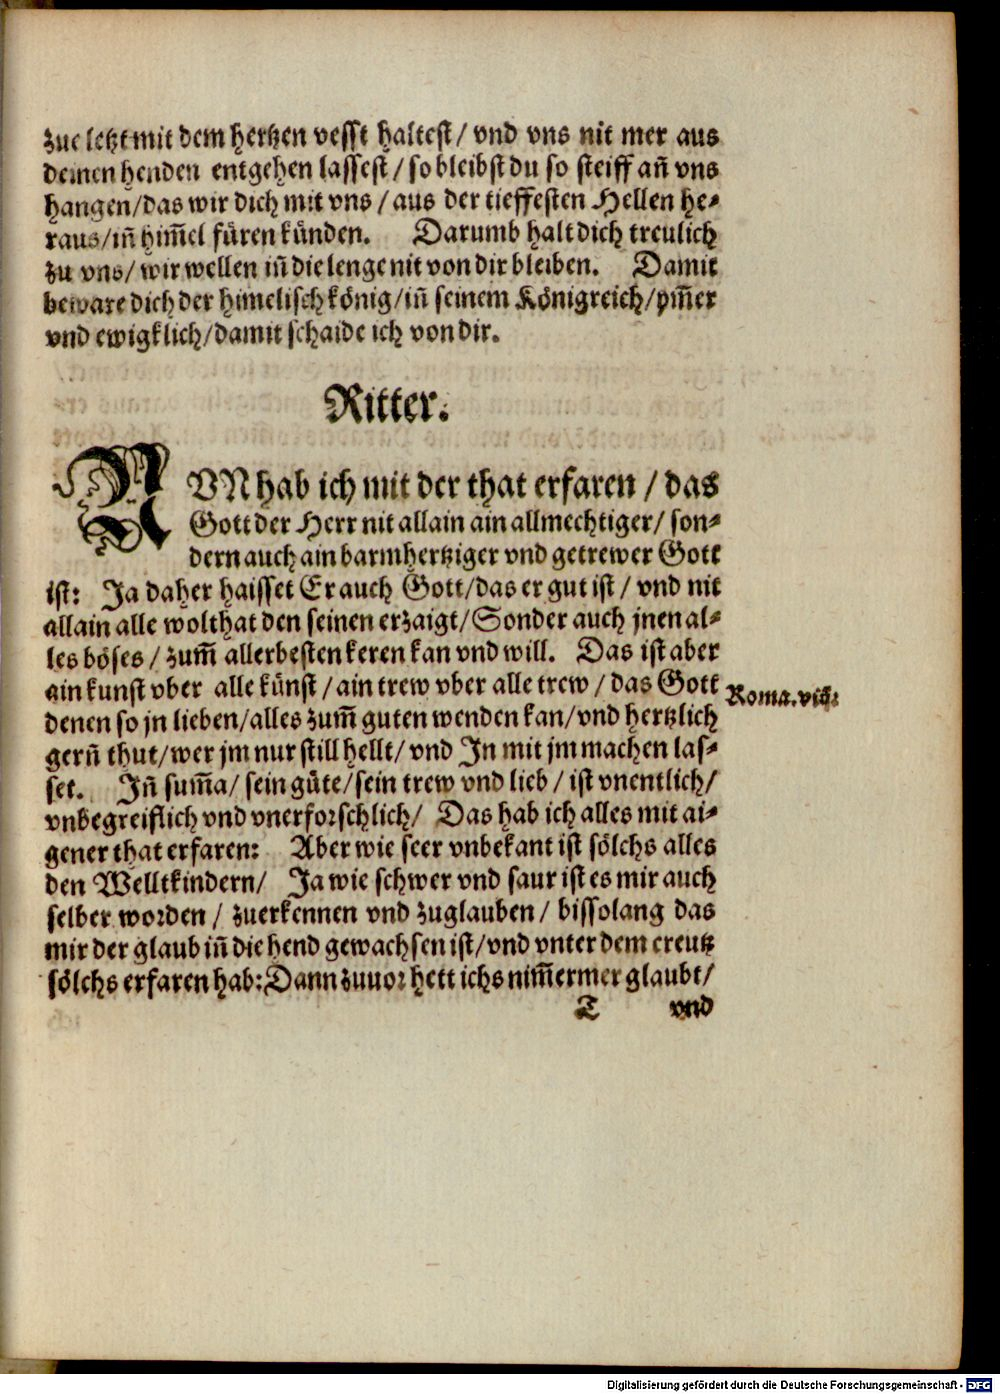 zue letzt mit dem hertzen vesst haltest / vnd vns nit mer aus
deinen henden entgehen lassest / so bleibst du so steiff añ vns
hangen/das wir dich mit vns / aus der tieffesten Hellen he⸗
raus/iñ him̃el füren künden. Darumb halt dich treulich
zu vns/ wir wellen iñ die lenge nit von dir bleiben. Damit
beware dich der himelisch könig/iñ seinem Königreich/ ym̃er
vnd ewigklich/damit schaide ich von dir.
Ritter.
NVN hab ich mit der that erfaren / das
Gott der Herr nit allain ain allmechtiger/ son⸗
dern auch ain barmhertziger vnd getrewer Gott
ist: Ja daher haisset Er auch Gott/das er gut ist / vnd nit
allain alle wolthat den seinen erzaigt/ Sonder auch jnen al⸗
les böses / zum̃ allerbesten keren kan vnd will. Das ist aber
ain kunst vber alle künst / ain trew vber alle trew / das Gott
denen so jn lieben/alles zum̃ guten wenden kan/vnd hertzlich
gerñ thut/wer jm nur still hellt/ vnd Jn mit jm machen las⸗
set. Jñ sum̃a/ sein güte/sein trew vnd lieb / ist vnentlich/
vnbegreiflich vnd vnerforschlich/ Das hab ich alles mit ai⸗
gener that erfaren: Aber wie seer vnbekant ist sölchs alles
den Welltkindern/ Ja wie schwer vnd saur ist es mir auch
selber worden / zuerkennen vnd zuglauben / bissolang das
mir der glaub iñ die hend gewachsen ist/vnd vnter dem creutz
sölchs erfaren hab: Dann zuuor hett ichs nim̃ermer glaubt/
T vnd
Roma. viij:
Digitalisierung gefördert durch die Deutsche Forschungsgemeinschaft - DFG